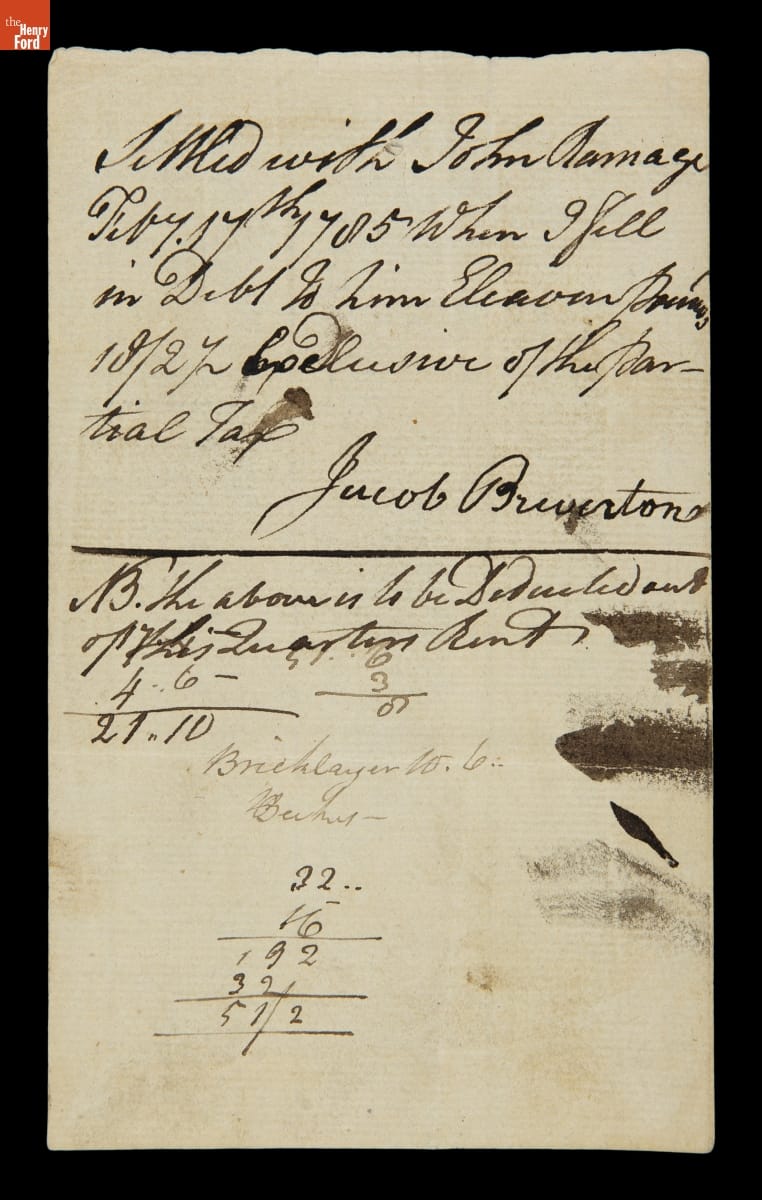 the
Henry
Ford
Settled with John Ramage
Feby. 17th 1785 When I fell
in Debt to him Eleaven pounds
18/2½ Exclusive of the Par-
tial Tax
Jacob Brewerton
NB. the above is to be Deducted out
of this Quarters Rent
6
4 .. 6 – 3
21 .. 10
Bricklayer 10 . 6 ..
32 ..
16
192
32
51/2